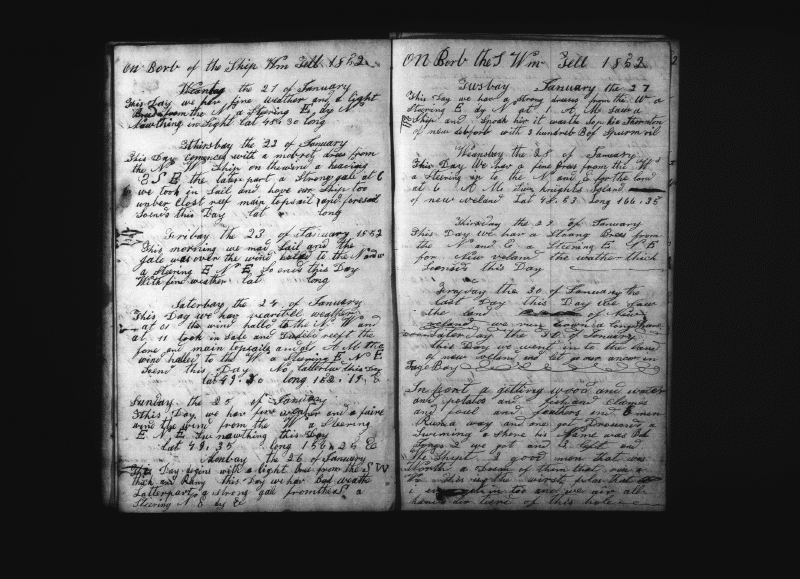 On Borb of the Ship Wm Tell 1852
the 21 of January
This Day we hav fine weather and a light
from the N a Steering E by N
Nawthing in Sight Lat 48 " 30 Long
Thirsbay the 22 of January
This Day comences with a modret brees from
the N W Ship on the wind a heading
E S E the later part a Strong gale at 6
we took in Sail and have our Ship too
unber Clost reef main topsail and foresail
So ends this Day Lat Long
Fribay the 23 of January 1852
This morning we mad Sail and the
gale was over the wind to the N and W
a Steering E N E So ends this Day
With fine weather Lat Long
Saterbay the 24 of January
This Day we hav weather
at 01 the wind halld to the N W and
at 11 took in Sail and reeft the
fore and main topsails and at A M the
wind halled to the W a Steering E N E
So ends this Day No this Day
Lat 49 " 30 Long 152 " 15 E
Sunday the 25 of January
This Day we hav fine wether and a faire
wind the wind from the W a Steering
E N E See nawthing this Day
Lat 49 " 35 Long 156 " 25 E
Monbay the 26 of January
This Day begins with a light bree from the S W
thick and Rany this Day we hav Bad weathe
Latter part a Strong gail from the S a
Steering N E by E
On Borb the S Wm Tell 1852
Tusbay January the 27
This Day we hav a Strong breess from the W a
Steering E by N at 1 A M Saw a
Ship and Spoak hir it was the Thornton
of new bedforb with 3 hundreb B of Spurm oil
Wensbay the 28 of January
This Day We hav a fine brees from the W S
a Steering up to the N and E for the land
at 6 A M knights Island
of new veland Lat 48 " 53 Long 166 " 35
Thirsday the 29 of January
This Day we hav a Strang Brees from
the N and E a Steering E N E
for New veland the wather thick
So ends this Day
Fryday the 30 of January the
last Day this Day we saw
the land of New
veland we run bown a long Shore
Saterday the 31 of January
this Day we went in to the land
of new velan and let go our ancor in
Bay
In port a getting wood and water
and potatos and fish and Clames
and foul and feathers and 6 men
Run a way and one got Drounded a
Swimming a Shore his Name was Bob
we got and
the Shipt 3 good men that was
Worth a Dosen of them that run a
way this is the worst plas that
i in too and we air all
here tiere of this hole